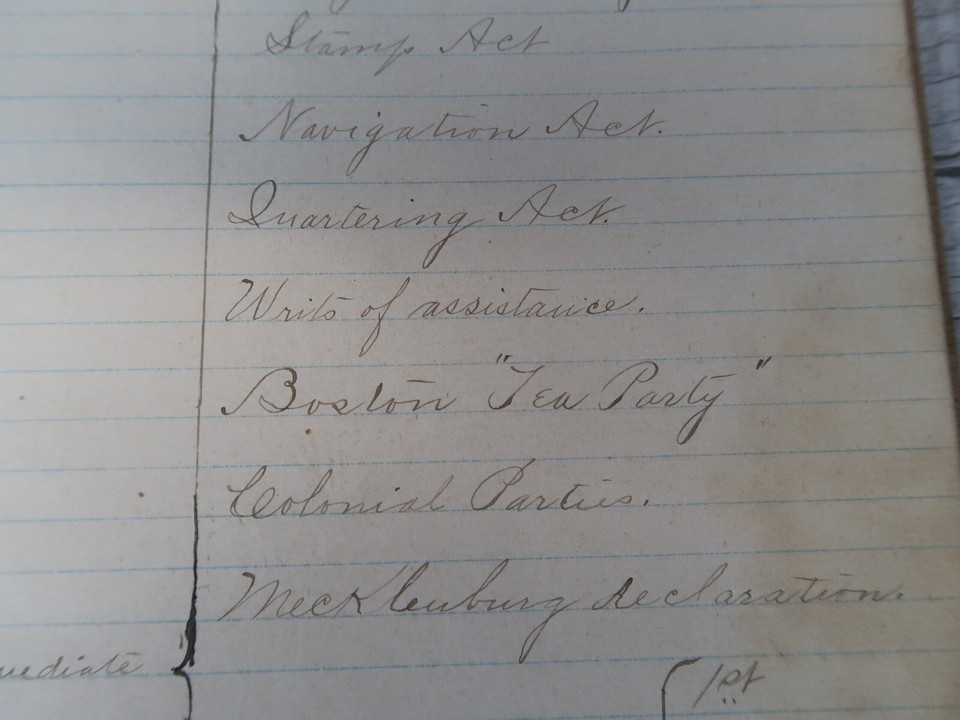 Stamp Act
Navigation Act.
Quartering Act.
Writs of assistance.
Boston "Tea Party"
Colonial Parties.
Mecklenburg declaration.
1st